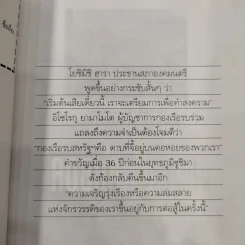 โยชิมิชิ ฮารา ประธานสภาองคมนตรี
พูดขึ้นอย่างกระชับสั้นๆ ว่า
"เริ่มต้นเสียเดี๋ยวนี้ เราจะเตรียมการเพื่อทำสงคราม"
อิโซโรกุ ยามาโมโต ผู้บัญชาการกองเรือรบร่วม
แถลงถึงความจำเป็นต้องโจมตีว่า
"กองเรือรบสหรัฐฯคือ ดาบที่จี้อยู่บนคอหอยของพวกเรา"
คำขวัญเมื่อ 36 ปีก่อนในยุทธภูมิซูชิมา
ดังก้องกลับคืนขึ้นมาอีก
"ความเจริญรุ่งเรืองหรือความล่มสลาย
แห่งจักรวรรดิของเราขึ้นอยู่กับการต่อสู้ในครั้งนี้"